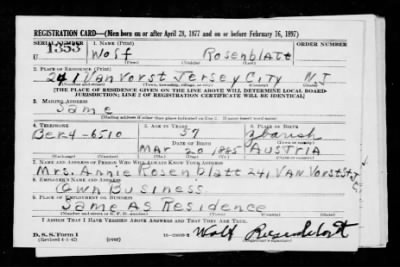 REGISTRATION CARD—(Men born on or after April 28, 1877 and on or before February 16, 1897)
SERIAL NUMBER 1. NAME (Print) ORDER NUMBER
U 1353 Wolf Rosenblatt
(First) (Middle) (Last)
2. PLACE OF RESIDENCE (Print)
241 Van Vorst Jersey City N J
[THE PLACE OF RESIDENCE GIVEN ON THE LINE ABOVE WILL DETERMINE LOCAL BOARD
JURISDICTION; LINE 2 OF REGISTRATION CERTIFICATE WILL BE IDENTICAL]
3. MAILING ADDRESS
Same
[Mailing address if other than place indicated on line 2. If same insert word same]
4. TELEPHONE 5. AGE IN YEARS 6. PLACE OF BIRTH
Ber4-6510 57
DATE OF BIRTH
Mar 20 1885 Austria
(Exchange) (Number) (Mo.) (Day) (Yr.) (State or country)
7. NAME AND ADDRESS OF PERSON WHO WILL ALWAYS KNOW YOUR ADDRESS
Mrs. Annie Rosenblatt 241 Van Vorst St J
8. EMPLOYER'S NAME AND ADDRESS
Own Business
9. PLACE OF EMPLOYMENT OR BUSINESS
Same As Residence
I AFFIRM THAT I HAVE VERIFIED ABOVE ANSWERS AND THAT THEY ARE TRUE.
D. S. S. Form 1
(Revised 4-1-42) Wolf Rosenblatt